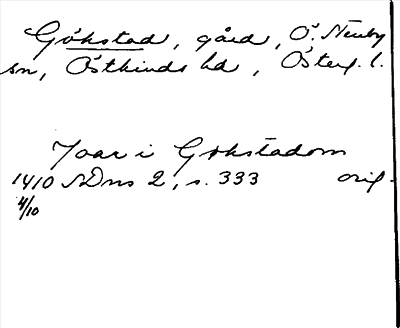 Gökstad, gård, Ö. Stenby
sn, Östkinds hd, Österg. l.
Joar i Gokstadom
1410 SDns 2, s. 333 orig.
4/10